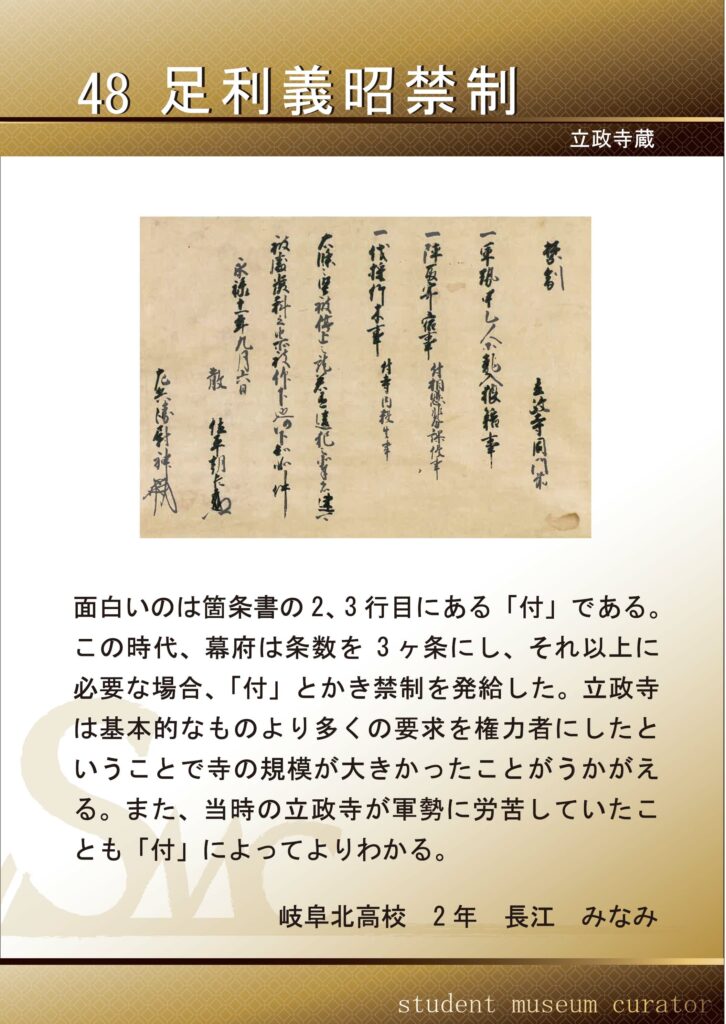 48 足利義昭禁制
立政寺蔵
禁制
立政寺同門前
一軍勢甲乙人等乱入狼藉事
一陣取并寄宿事 付相懸非分課役事
一伐採竹木事 付寺内殺生事
永禄十一年九月六日
散位平朝臣
左兵衛尉神
面白いのは箇条書の2、3行目にある「付」である。
この時代、幕府は条数を 3ヶ条にし、それ以上に
必要な場合、「付」とかき禁制を発給した。立政寺
は基本的なものより多くの要求を権力者にしたと
いうことで寺の規模が大きかったことがうかがえ
る。また、当時の立政寺が軍勢に労苦していたこ
とも「付」によってよりわかる。
岐阜北高校 2年 長江 みなみ
SMC
student museum curator